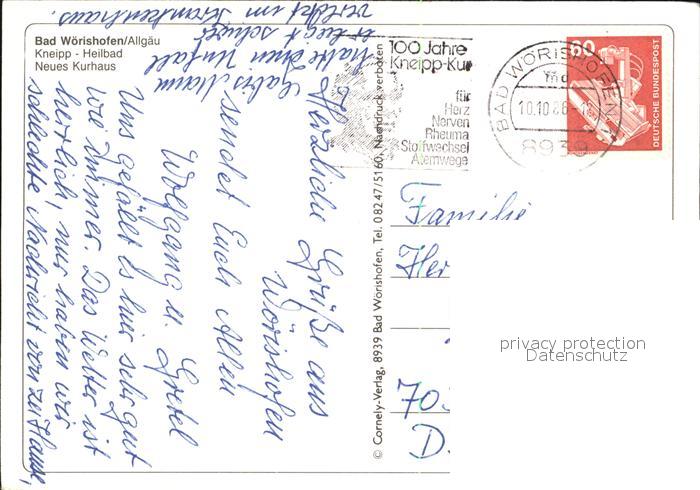 Bad Wörishofen/Allgäu
Kneipp - Heilbad
Neues Kurhaus
Herzliche Grüße aus
Wörishofen
sendet Euch Allen
Wolfgang u. Gretel
Uns gefällt Es hier sehr gut
wie immer. Das Wetter ist
herrlich, nur haben wir
schlechte Nachricht von zu Hause,
Mann
hatte Unfall
er liegt schwer
verletzt im Krankenhaus.
© Cornely-Verlag, 8939 Bad Wörishofen, Tel. 08247/5160, Nachdruck verboten
100 Jahre
Kneipp-Kur
für
Herz
Nerven
Rheuma
Stoffwechsel
Atemwege
BAD WÖRISHOFEN
md
10.10.86
8939
60
DEUTSCHE BUNDESPOST
Familie
Her
70
D.
privacy protection
Datenschutz